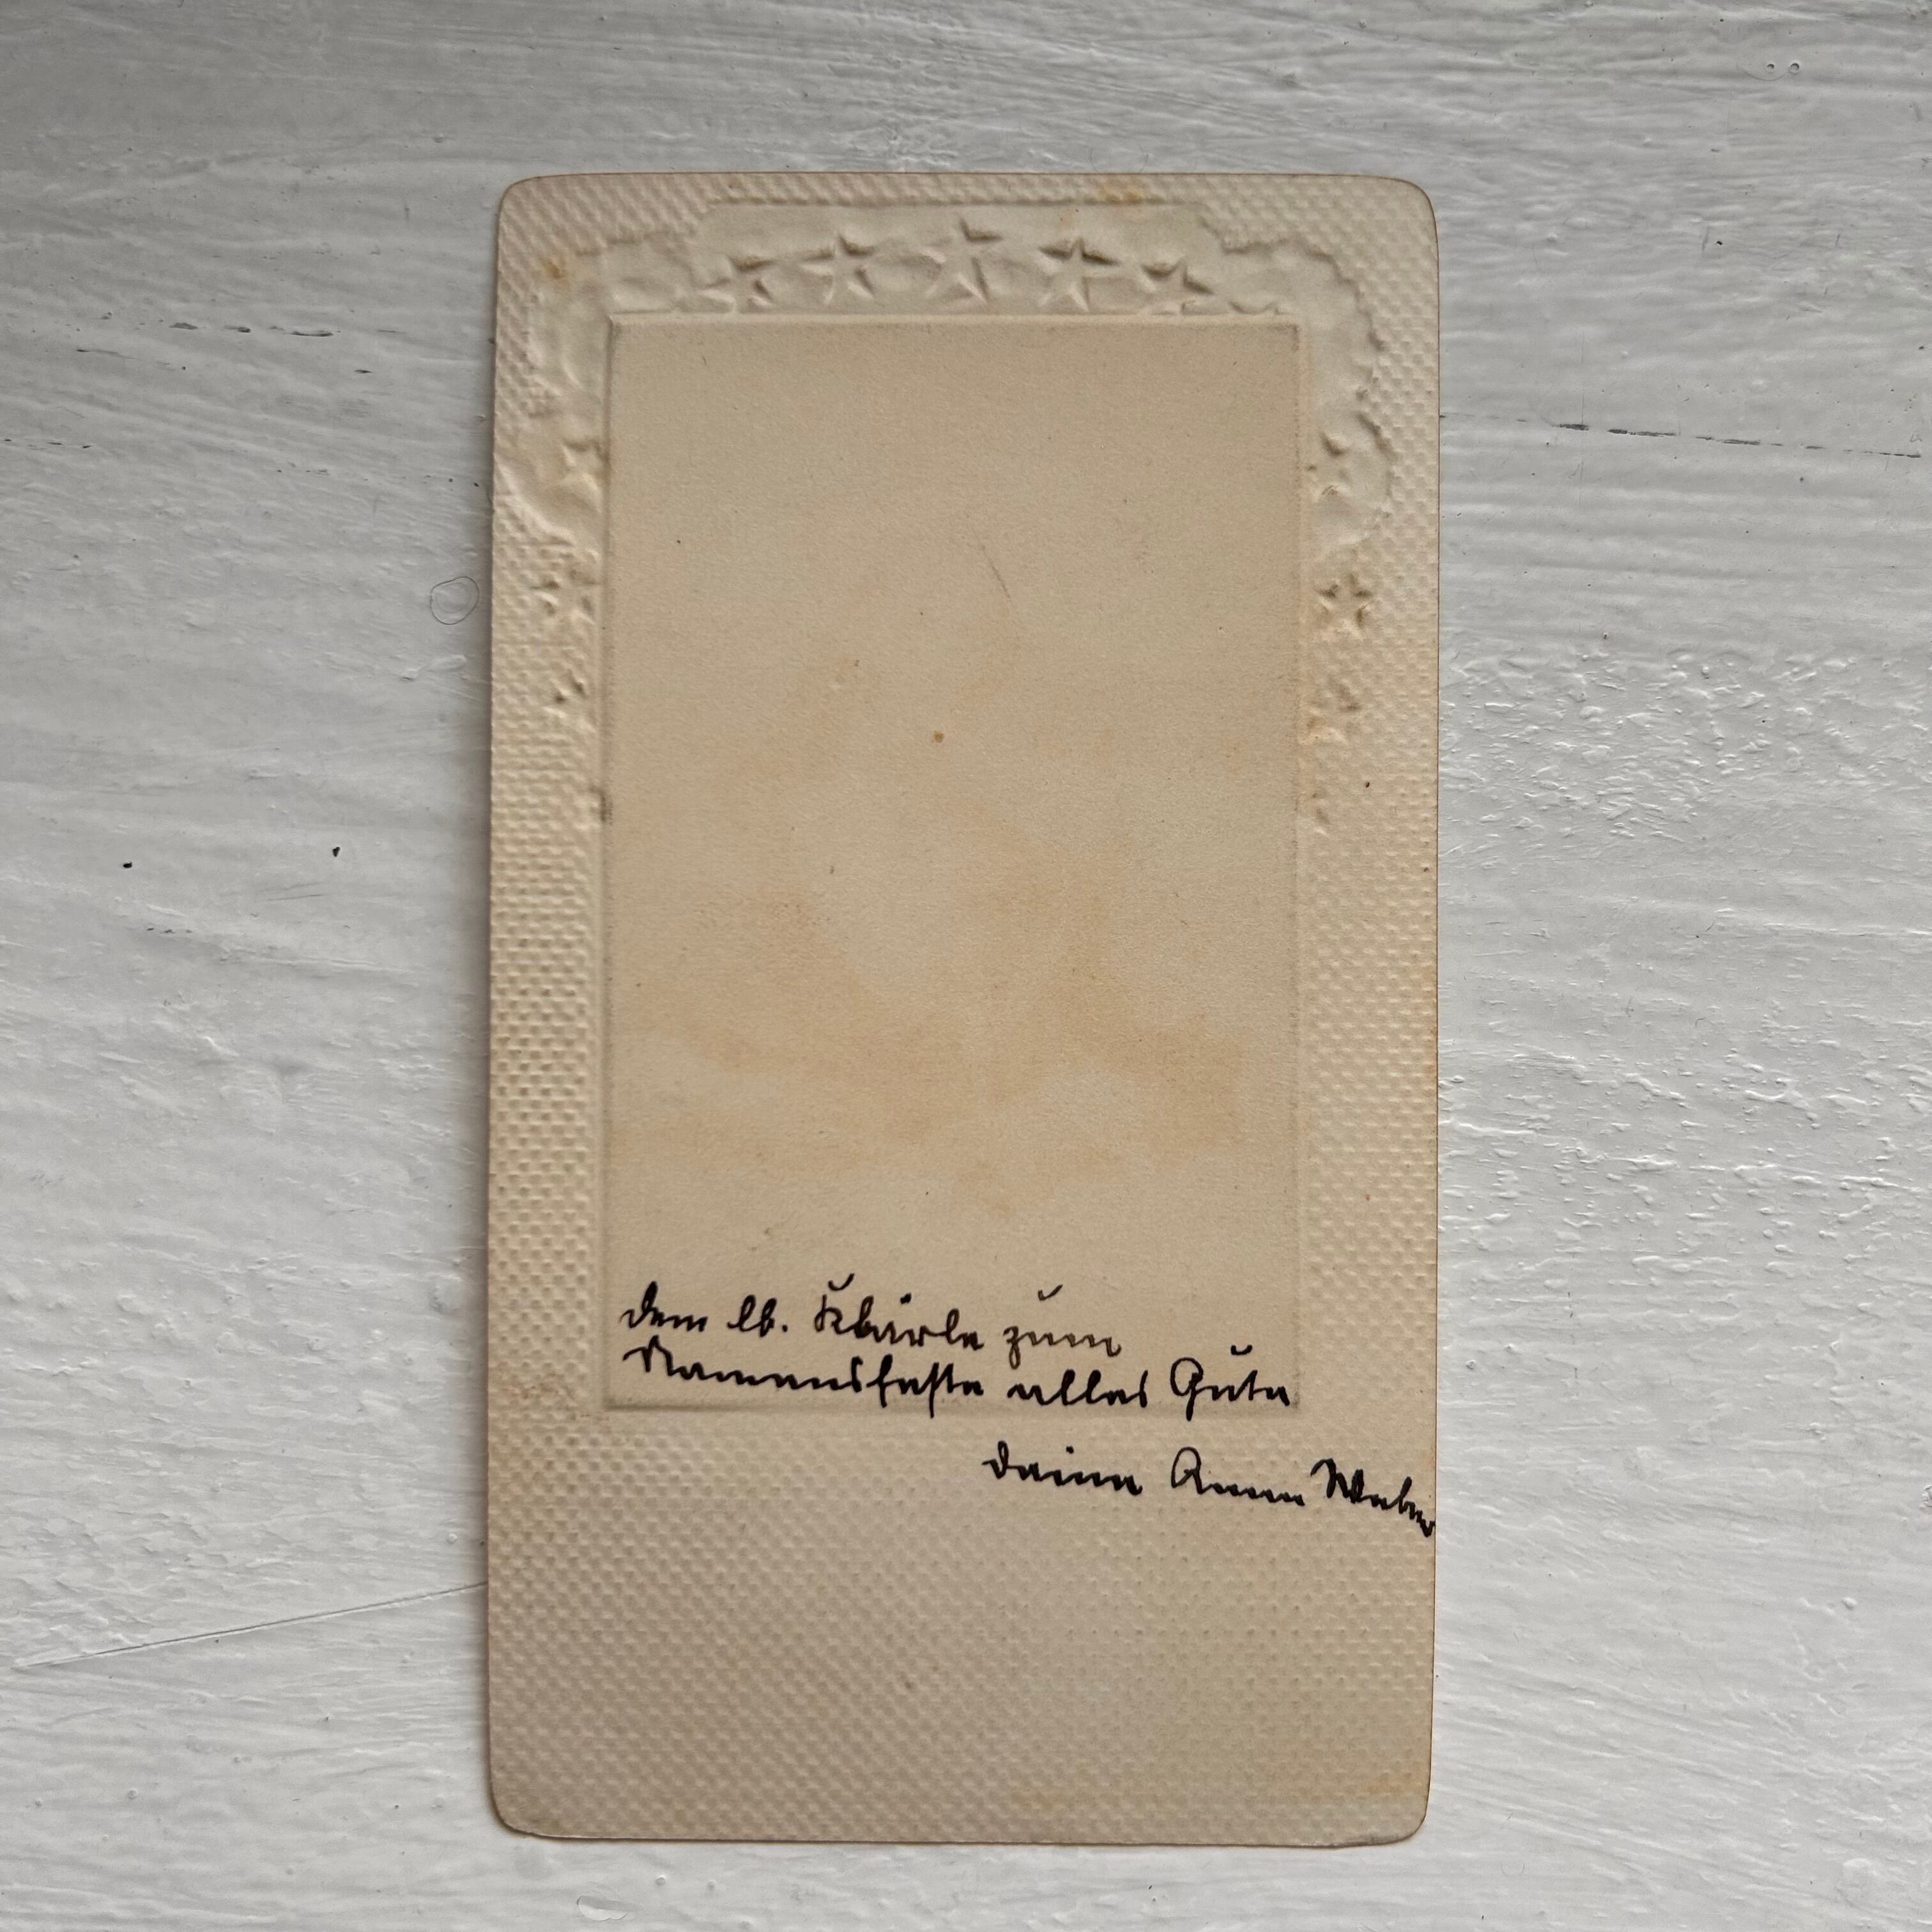 Dem lb. zum
Namensfeste alles Gute
Deine Anna Weber